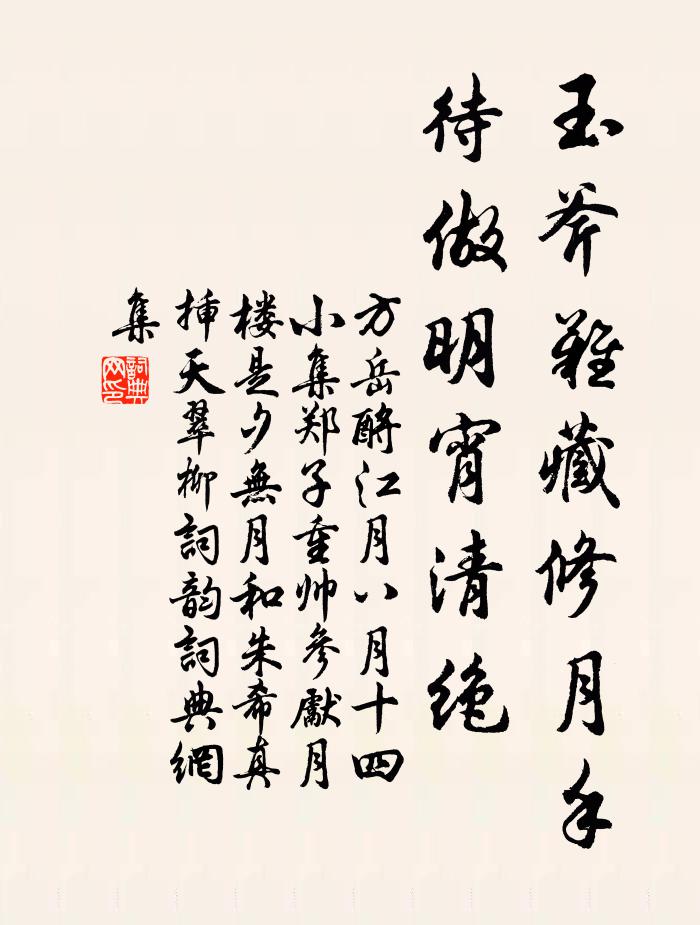 玉斧难藏修月手
待做明宵清绝
方岳酹江月八月十四
小集郑子重帅参献月
楼是夕無月和朱希真
挿天翠柳詞韵詞典網
集
詞典
网印